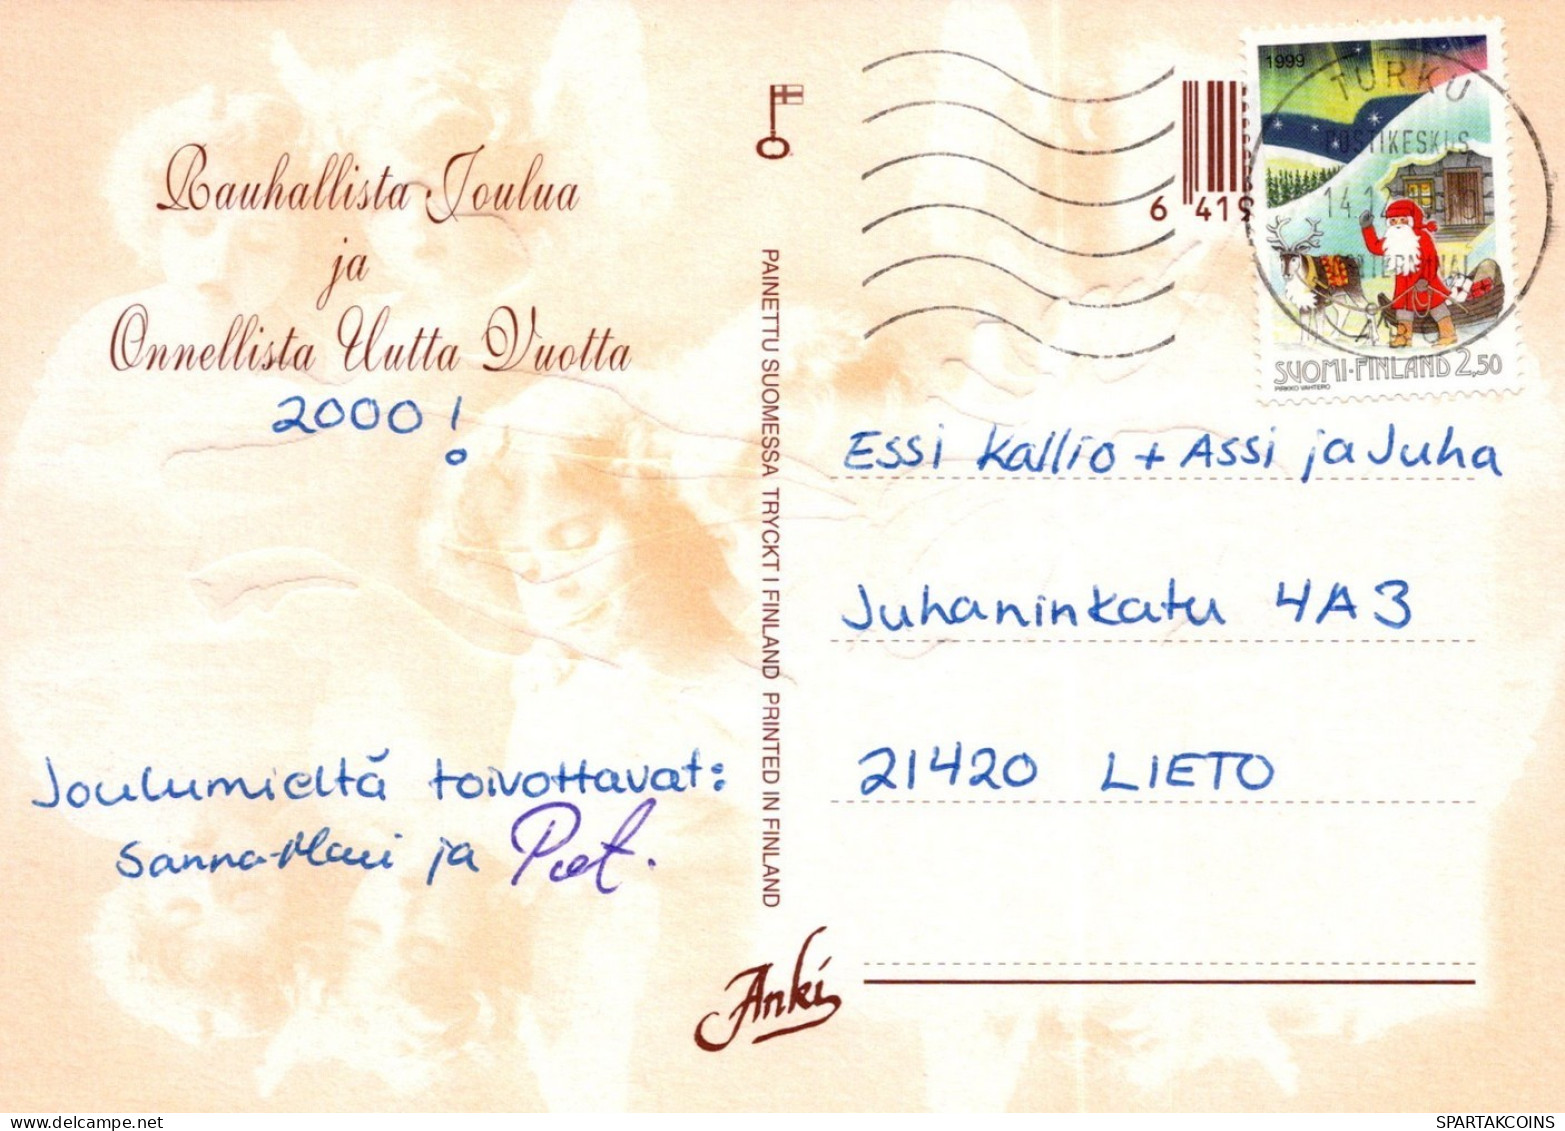 Rauhallista Joulua
ja
Onnellista Uutta Vuotta
2000!
Joulumieltä toivottavat:
Sanna-Mari ja
PAINETTU SUOMESSA TRYCKT I FINLAND PRINTED IN FINLAND
Anki
6 419
1999
TURKU
POSTIKESKUS
14.12
ÅBO
SUOMI·FINLAND 2,50
PIRKKO VAHTERO
Essi Kallio + Assi ja Juha
Juhaninkatu 4A3
21420 LIETO
SPARTAKCOINS